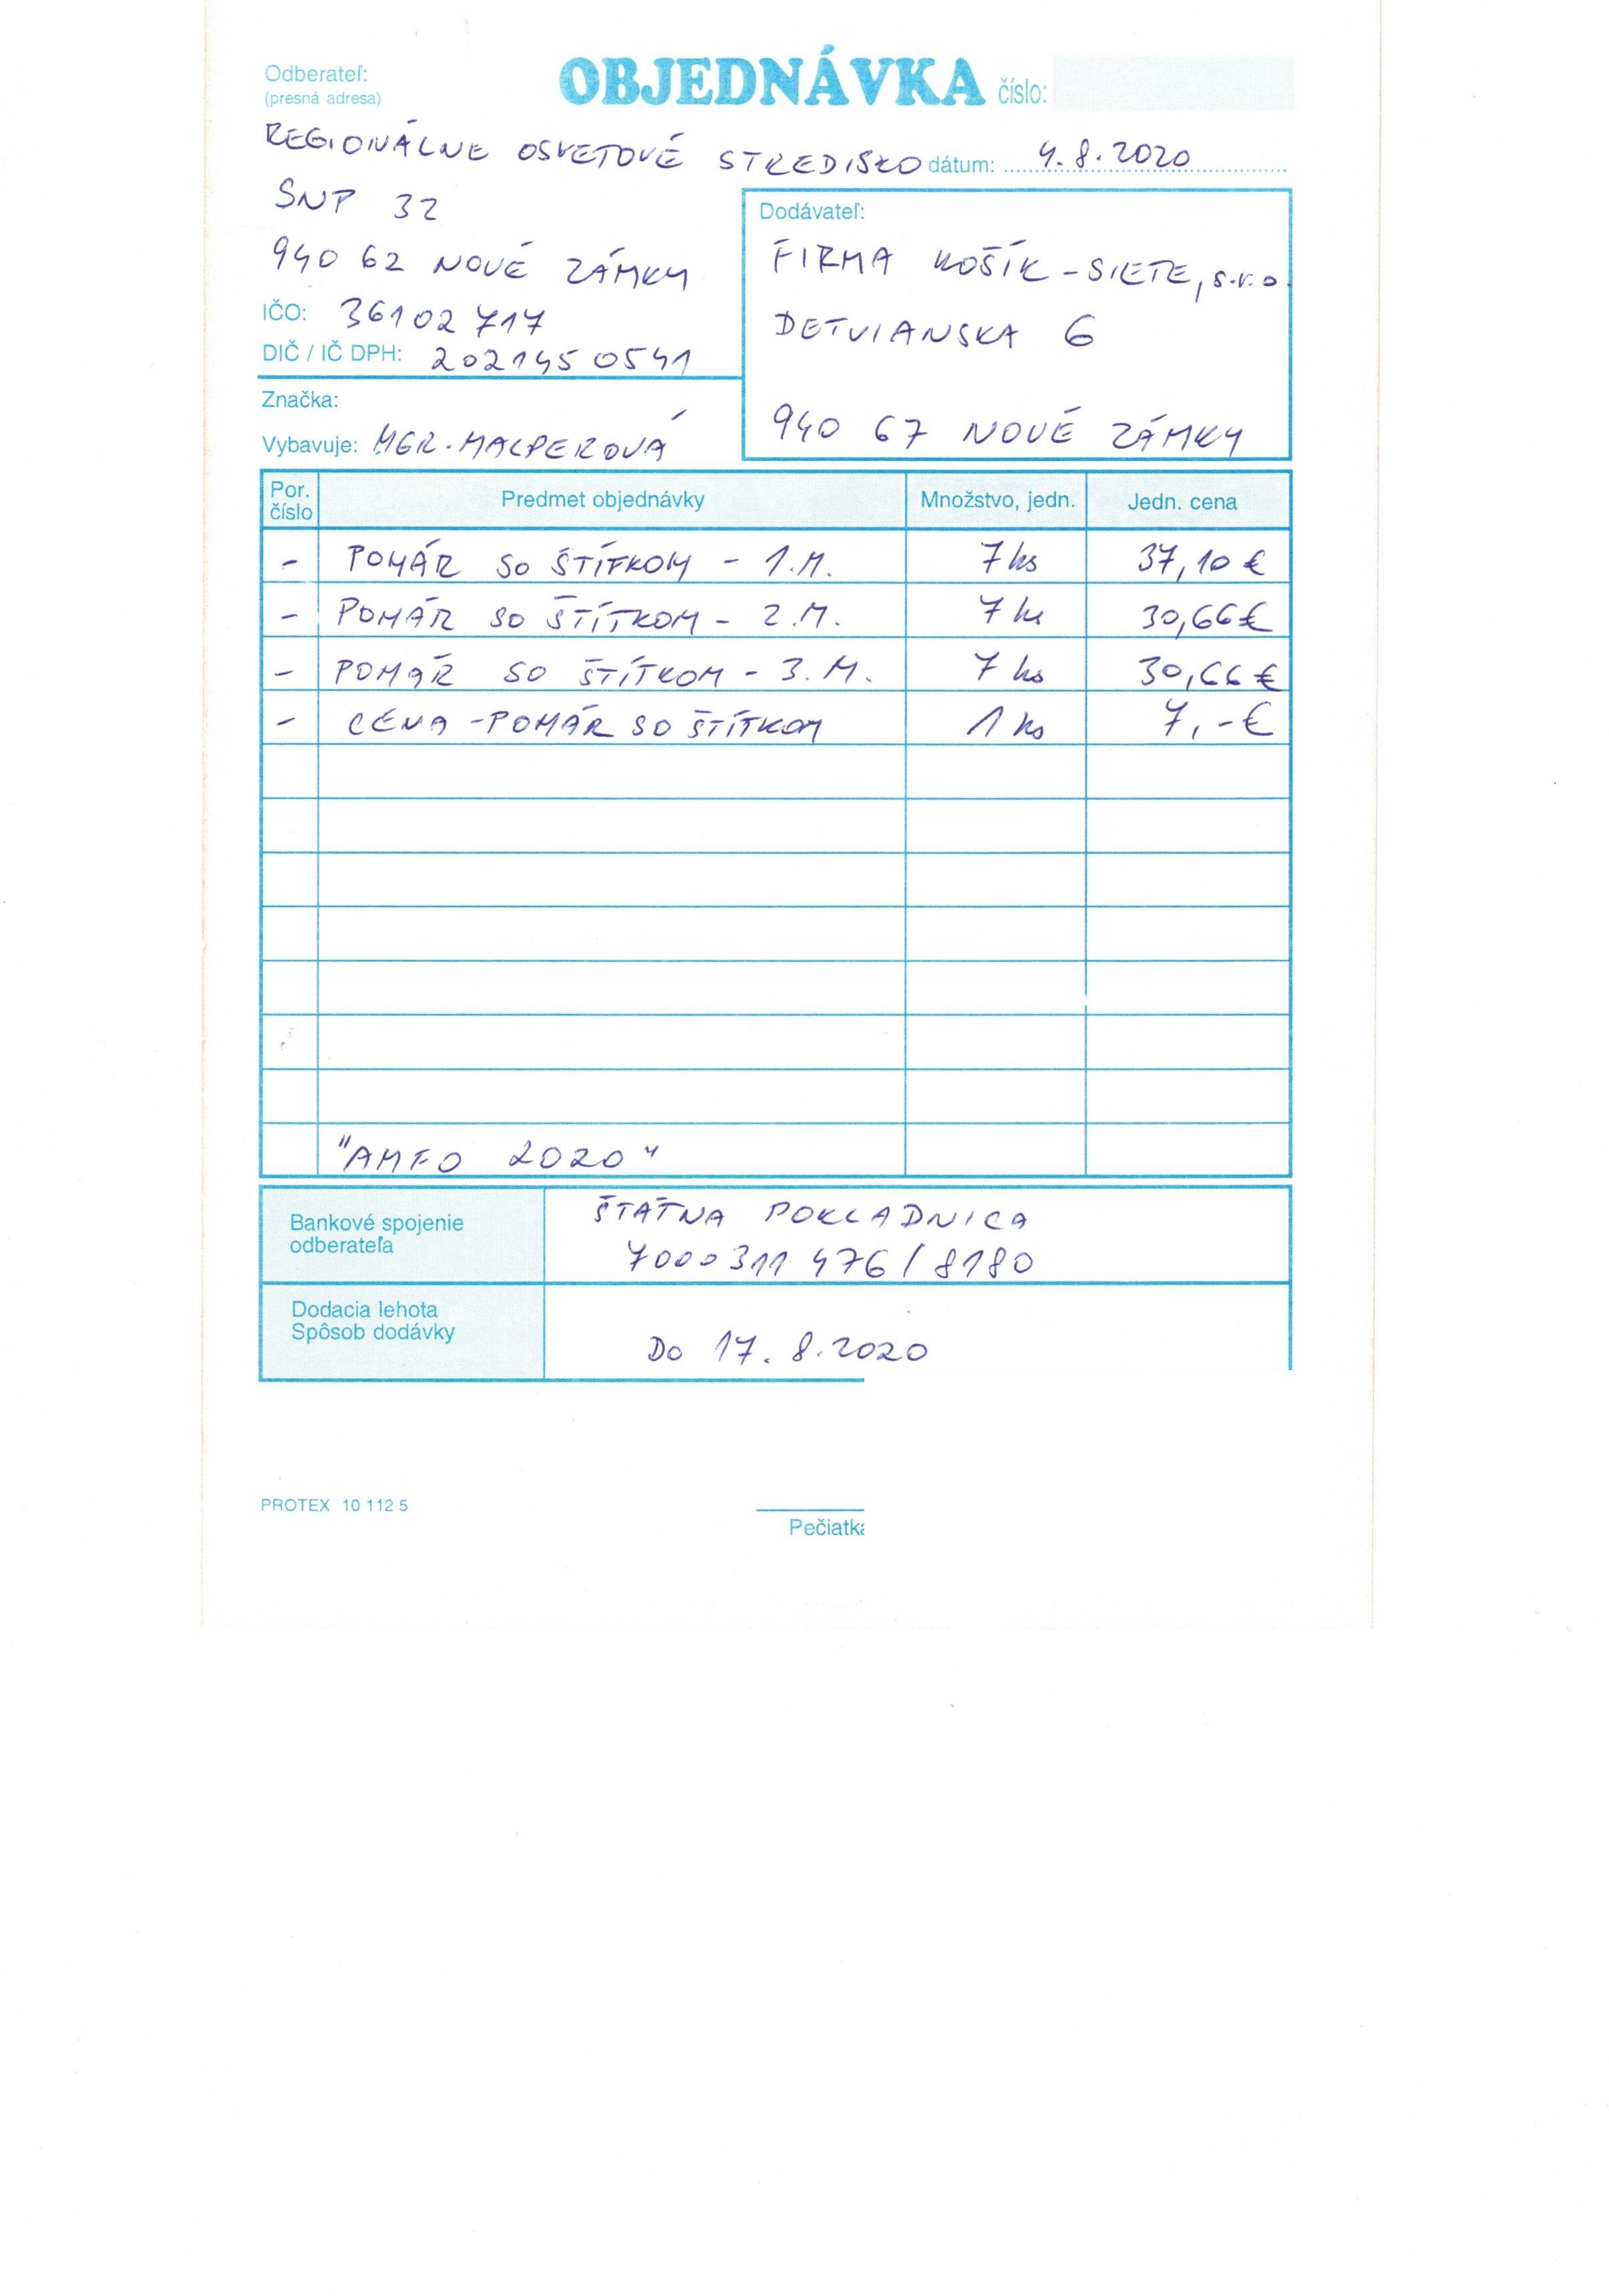 Odberateľ:
(presná adresa)
OBJEDNÁVKA číslo:
REGIONÁLNE OSVETOVÉ STREDISKO dátum: 4.8.2020
SNP 32
940 62 NOVÉ ZÁMKY
IČO: 36102717
DIČ / IČ DPH: 2021450541
Značka:
Vybavuje: MGR. MALPEROVÁ
Dodávateľ:
FIRMA KOŠÍK - SIETE, s.r.o.
DETVIANSKA 6
940 67 NOVÉ ZÁMKY
Por. číslo Predmet objednávky Množstvo, jedn. Jedn. cena
- POHÁR SO ŠTÍTKOM - 1.M. 7 ks 37,10 €
- POHÁR SO ŠTÍTKOM - 2.M. 7 ks 30,66 €
- POHÁR SO ŠTÍTKOM - 3.M. 7 ks 30,66 €
- CENA - POHÁR SO ŠTÍTKOM 1 ks 7,- €
"AMFO 2020"
Bankové spojenie
odberateľa
ŠTÁTNA POKLADNICA
7000311476/8180
Dodacia lehota
Spôsob dodávky
DO 17.8.2020
PROTEX 10 112 5
Pečiatka